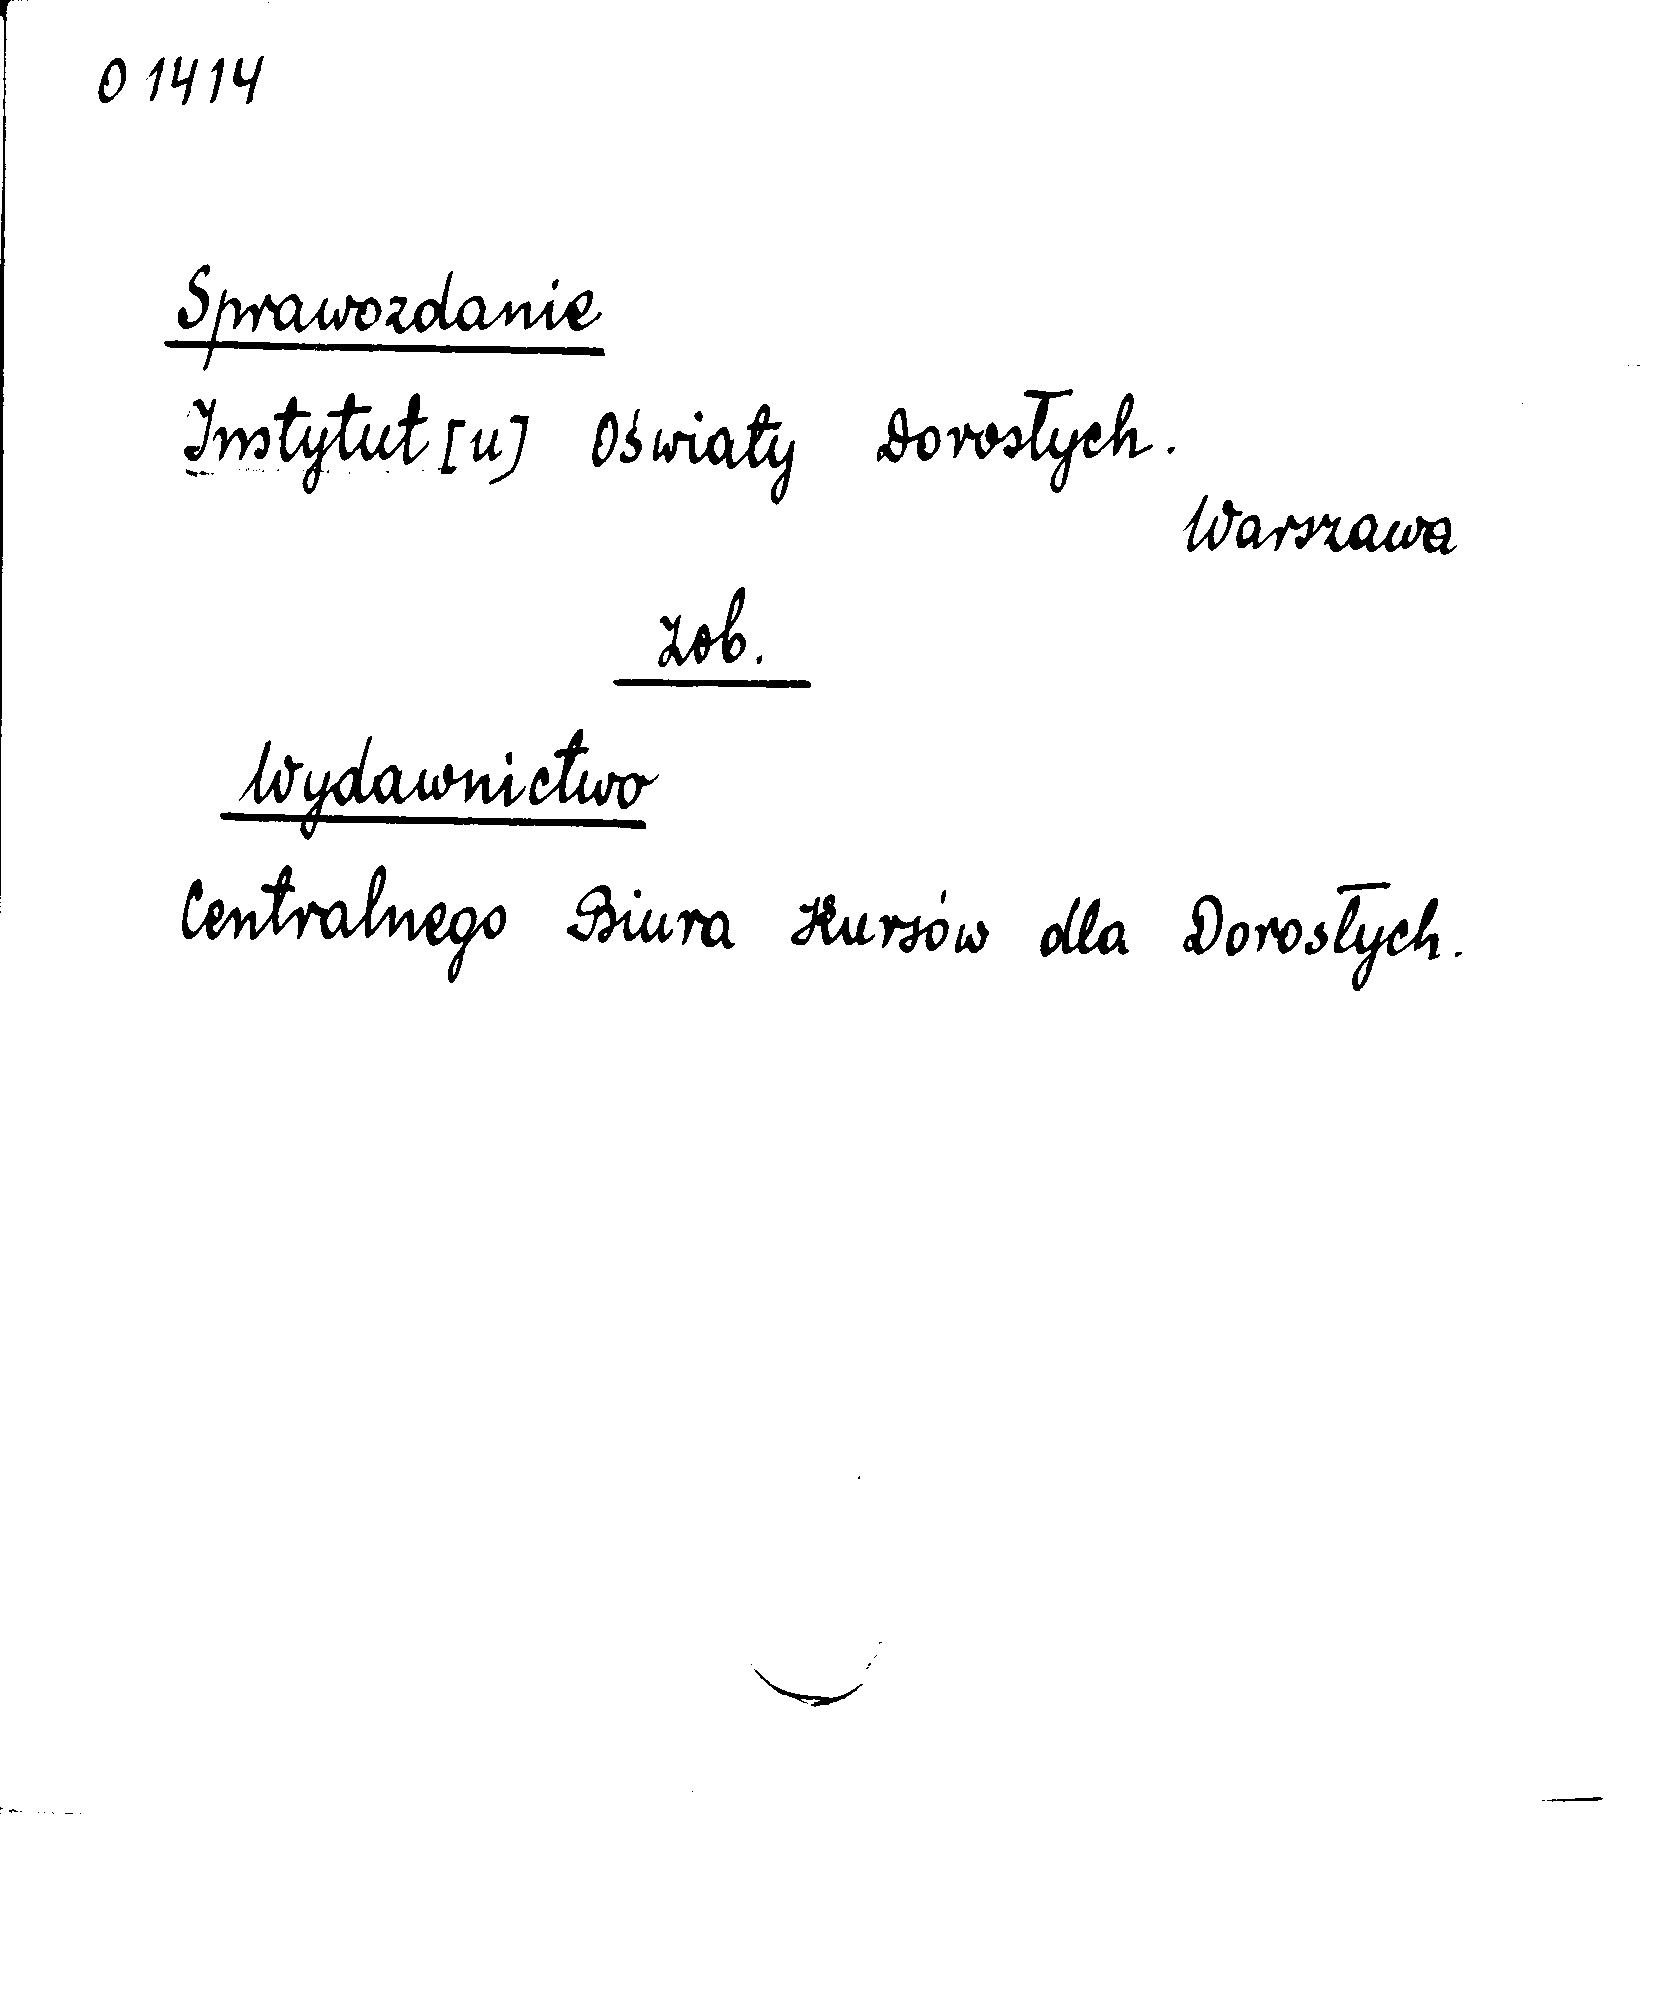 O 1414
Sprawozdanie
Instytut[u] Oświaty Dorosłych.
Warszawa
Zob.
Wydawnictwo
Centralnego Biura Kursów dla Dorosłych.